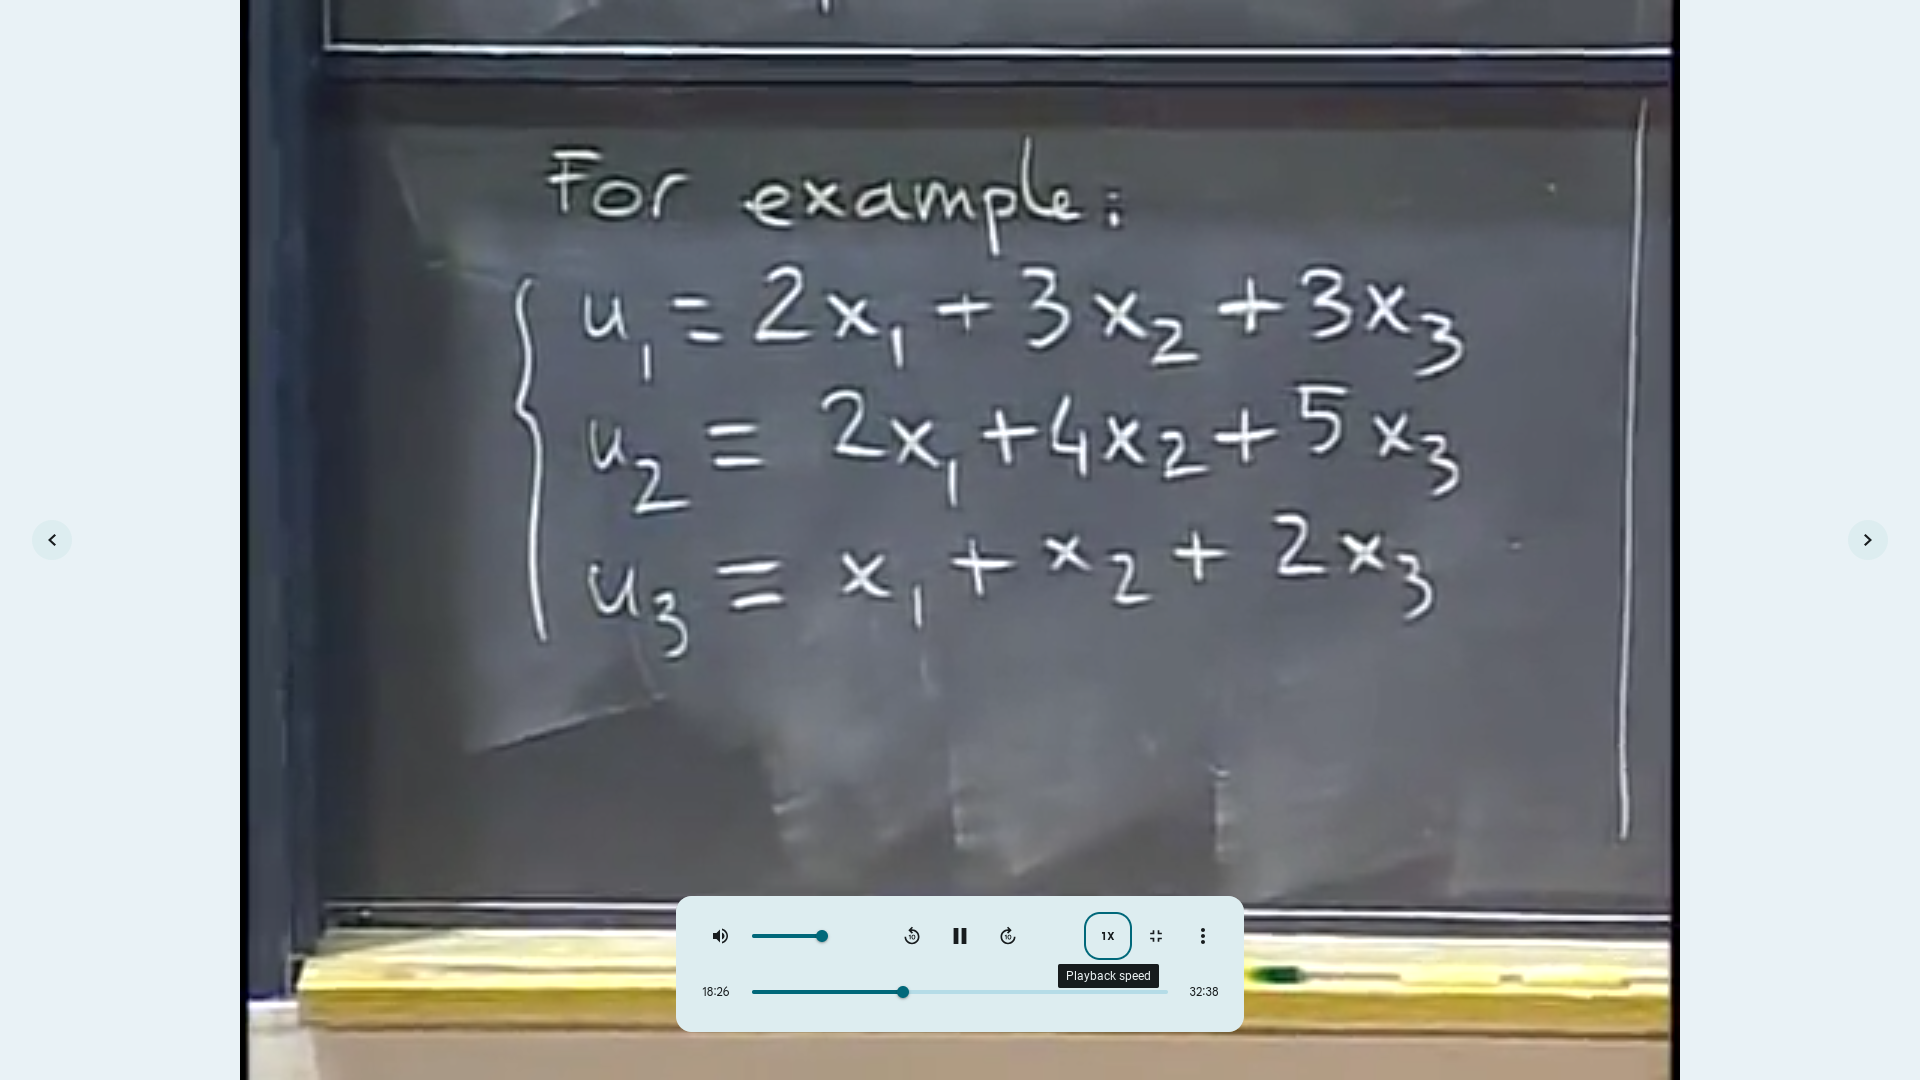 For example:
u₁ = 2x₁ + 3x₂ + 3x₃
u₂ = 2x₁ + 4x₂ + 5x₃
u₃ = x₁ + x₂ + 2x₃
10
10
1X
Playback speed
18:26
32:38